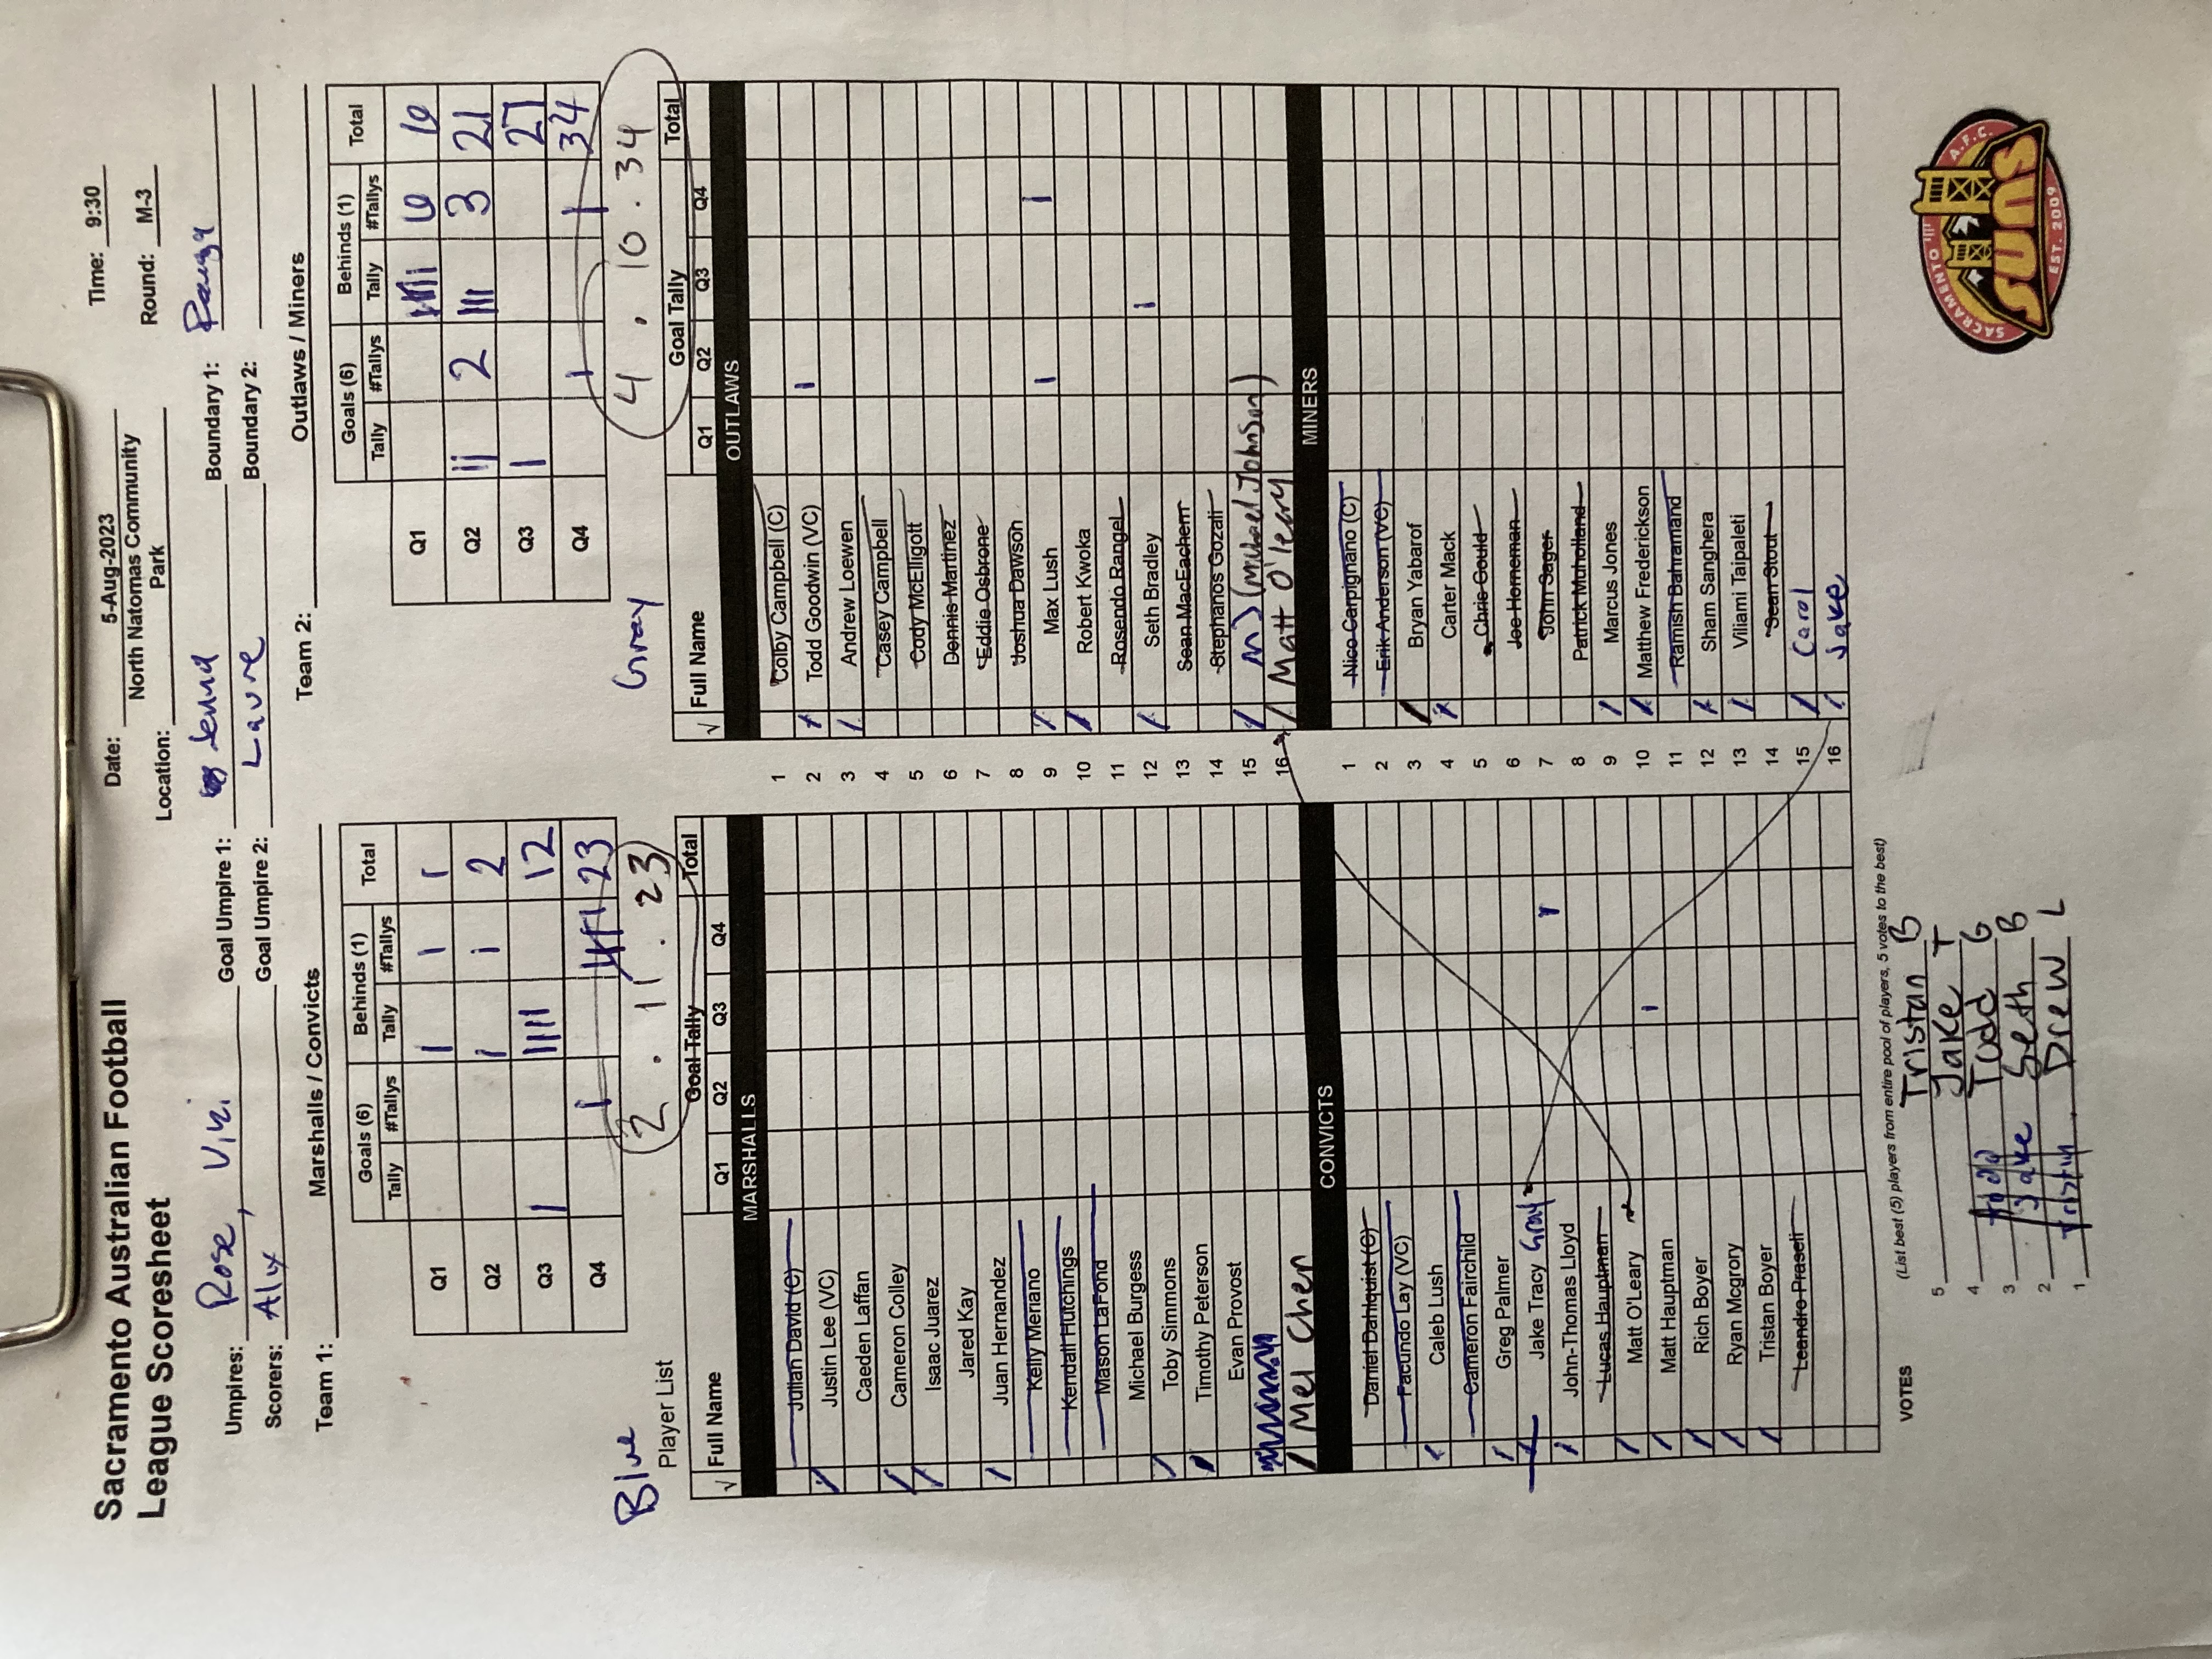 Sacramento Australian Football
League Scoresheet
Date: 5-Aug-2023 Time: 9:30
Location: North Natomas Community Park Round: M-3
Umpires: Rose, Vini Goal Umpire 1: Jenna Boundary 1:
Scorers: Alix Goal Umpire 2: Laure Boundary 2:
Team 1: Marshalls / Convicts
Goals (6) Behinds (1) Total
Tally #Tallys Tally #Tallys
Q1 | | 1
Q2 | | 2
Q3 | |||| 12
Q4 | 23
2 . 11 . 23
Team 2: Outlaws / Miners
Goals (6) Behinds (1) Total
Tally #Tallys Tally #Tallys
Q1 6 6
Q2 || 2 ||| 3 21
Q3 | 27
Q4 | | 34
4 . 10 . 34
Blue
Player List Goal Tally
√ Full Name Q1 Q2 Q3 Q4 Total
MARSHALLS
1 Julian David (C)
2 / Justin Lee (VC)
3 Caeden Laffan
4 / Cameron Colley
5 / Isaac Juarez
6 Jared Kay
7 / Juan Hernandez
8 Kelly Meriano
9 Kendall Hutchings
10 Mason LaFond
11 Michael Burgess
12 / Toby Simmons
13 / Timothy Peterson
14 Evan Provost
15
16 / Mel Chen
CONVICTS
1 Daniel Dahlquist (C)
2 Facundo Lay (VC)
3 / Caleb Lush
4 Cameron Fairchild
5 / Greg Palmer
6 / Jake Tracy Gray
7 / John-Thomas Lloyd |
8 Lucas Hauptman
9 / Matt O'Leary
10 / Matt Hauptman |
11 / Rich Boyer
12 / Ryan Mcgrory
13 / Tristan Boyer
14 Leandro Praseli
15
16
Gray
Goal Tally
√ Full Name Q1 Q2 Q3 Q4 Total
OUTLAWS
Colby Campbell (C)
/ Todd Goodwin (VC) |
/ Andrew Loewen
Casey Campbell
Cody McElligott
Dennis Martinez
Eddie Osbrone
Joshua Dawson
/ Max Lush | |
/ Robert Kwoka
Rosendo Rangel
/ Seth Bradley |
Sean MacEachern
Stephanos Gozali
/ MJ (Michael Johnson)
/ Matt O'Leary
MINERS
Nico Carpignano (C)
Erik Anderson (VC)
/ Bryan Yabarof
/ Carter Mack
Chris Gould
Joe Horneman
John Sager
Patrick Muholland
/ Marcus Jones
/ Matthew Frederickson
Ramish Bahramand
/ Sham Sanghera
/ Viliami Taipaleti
Sean Stout
/ Carol
/ Jake
VOTES (List best (5) players from entire pool of players, 5 votes to the best)
5 Tristan B
4 Jake T
3 Todd Todd G
2 Jake Seth B
1 Tristin Drew L
SACRAMENTO A.F.C.
SUNS
EST. 2009